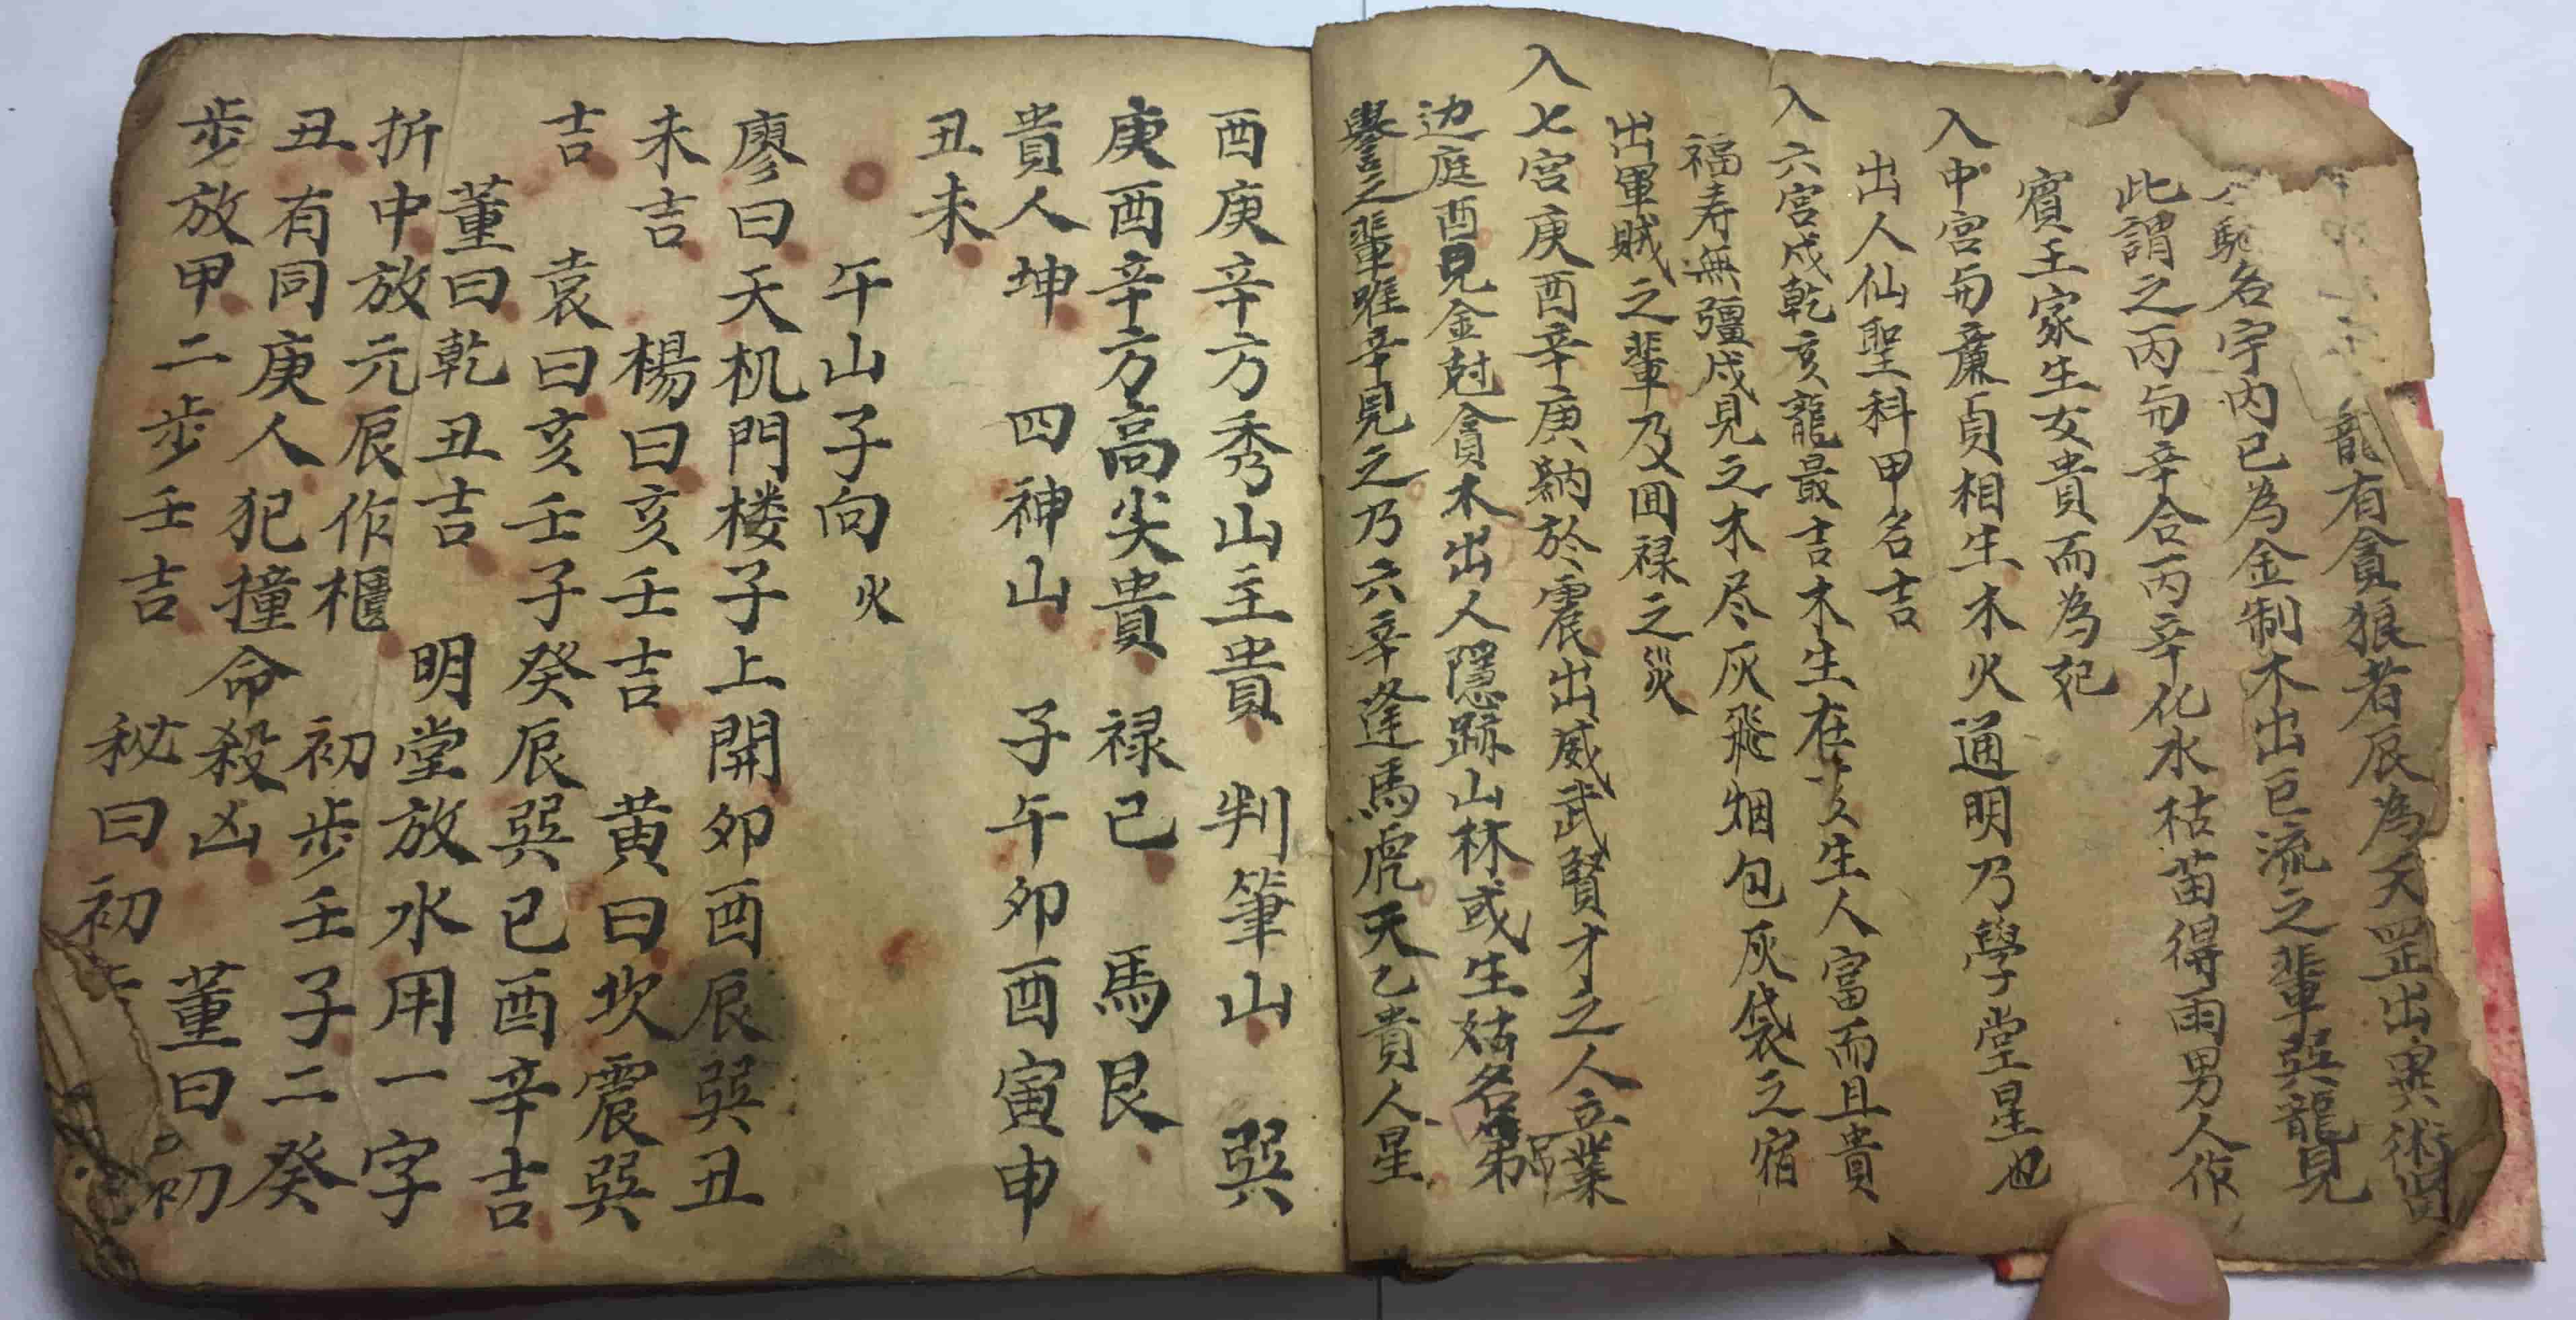 龍有貪狼者辰為天罡出異術
馳名宇内已為金制木出巨流之輩巽龍見
此謂之丙与辛合丙辛化水枯苗得雨男人作
賓王家生女貴而為妃
入中宮与廉貞相生木火通明乃學堂星也
出人仙聖科甲名吉
入六宮戌乾亥龍最吉木生在亥生人富而且貴
福寿無彊戌見之木尽灰飛烟包灰袋之宿
出軍賊之輩乃及囬禄之災
入七宮庚酉辛庚納於震出威武賢才之人立業
边庭酉見金尅貪木出人隱跡山林或生姑名第
譽之輩唯辛見之乃六辛逢馬虎天乙貴人星
酉庚辛方秀山主貴 判筆山 巽
庚酉辛方高尖貴 禄已 馬艮
貴人坤 四神山 子午卯酉寅申
丑未
午山子向火
廖曰天机門楼子上開卯酉辰巽丑
未吉 楊曰亥壬吉 黄曰坎震巽
吉 袁曰亥壬子癸辰巽已酉辛吉
董曰乾丑吉 明堂放水用一字
折中放元辰作櫃 初步壬子二癸
丑有同庚人犯撞命殺凶 董曰初
步放甲二步壬吉 秘曰初